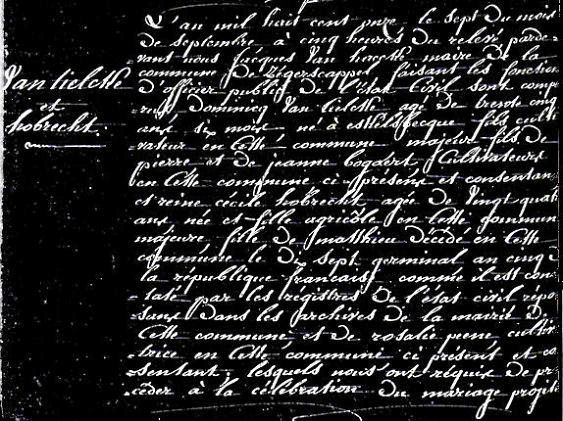 Van lielette
et
hobrecht.
L'an mil huit cent onze le sept du mois
de septembre à cinq heures du relevé parde-
vant nous Jacques Van hocette maire de la
commune de Legerscappel faisant les fonction
d'officier public de l'état civil sont compa
rus Dominicq Van lielette agé de trente cinq
ans six mois né à fils culti
vateur en cette commune majeur fils de
pierre et de jeanne bogaert Cultivateurs
en cette commune ci présens et consentan
et reine cécile hobrecht agée de Vingt quat
ans née et fille agricole en cette commun
majeure, fille de matthieu décidé en cette
commune le dix sept germinal an cinq d
la république francaise comme il est con-
taté par les régistres de l'état civil répo
sans dans les archives de la mairie de
Cette commune et de rosalie peene cultiv
trice en cette commune ci présent et co
sentant; lesquels nous ont réquis de pr
céder à la célébration du mariage projeté